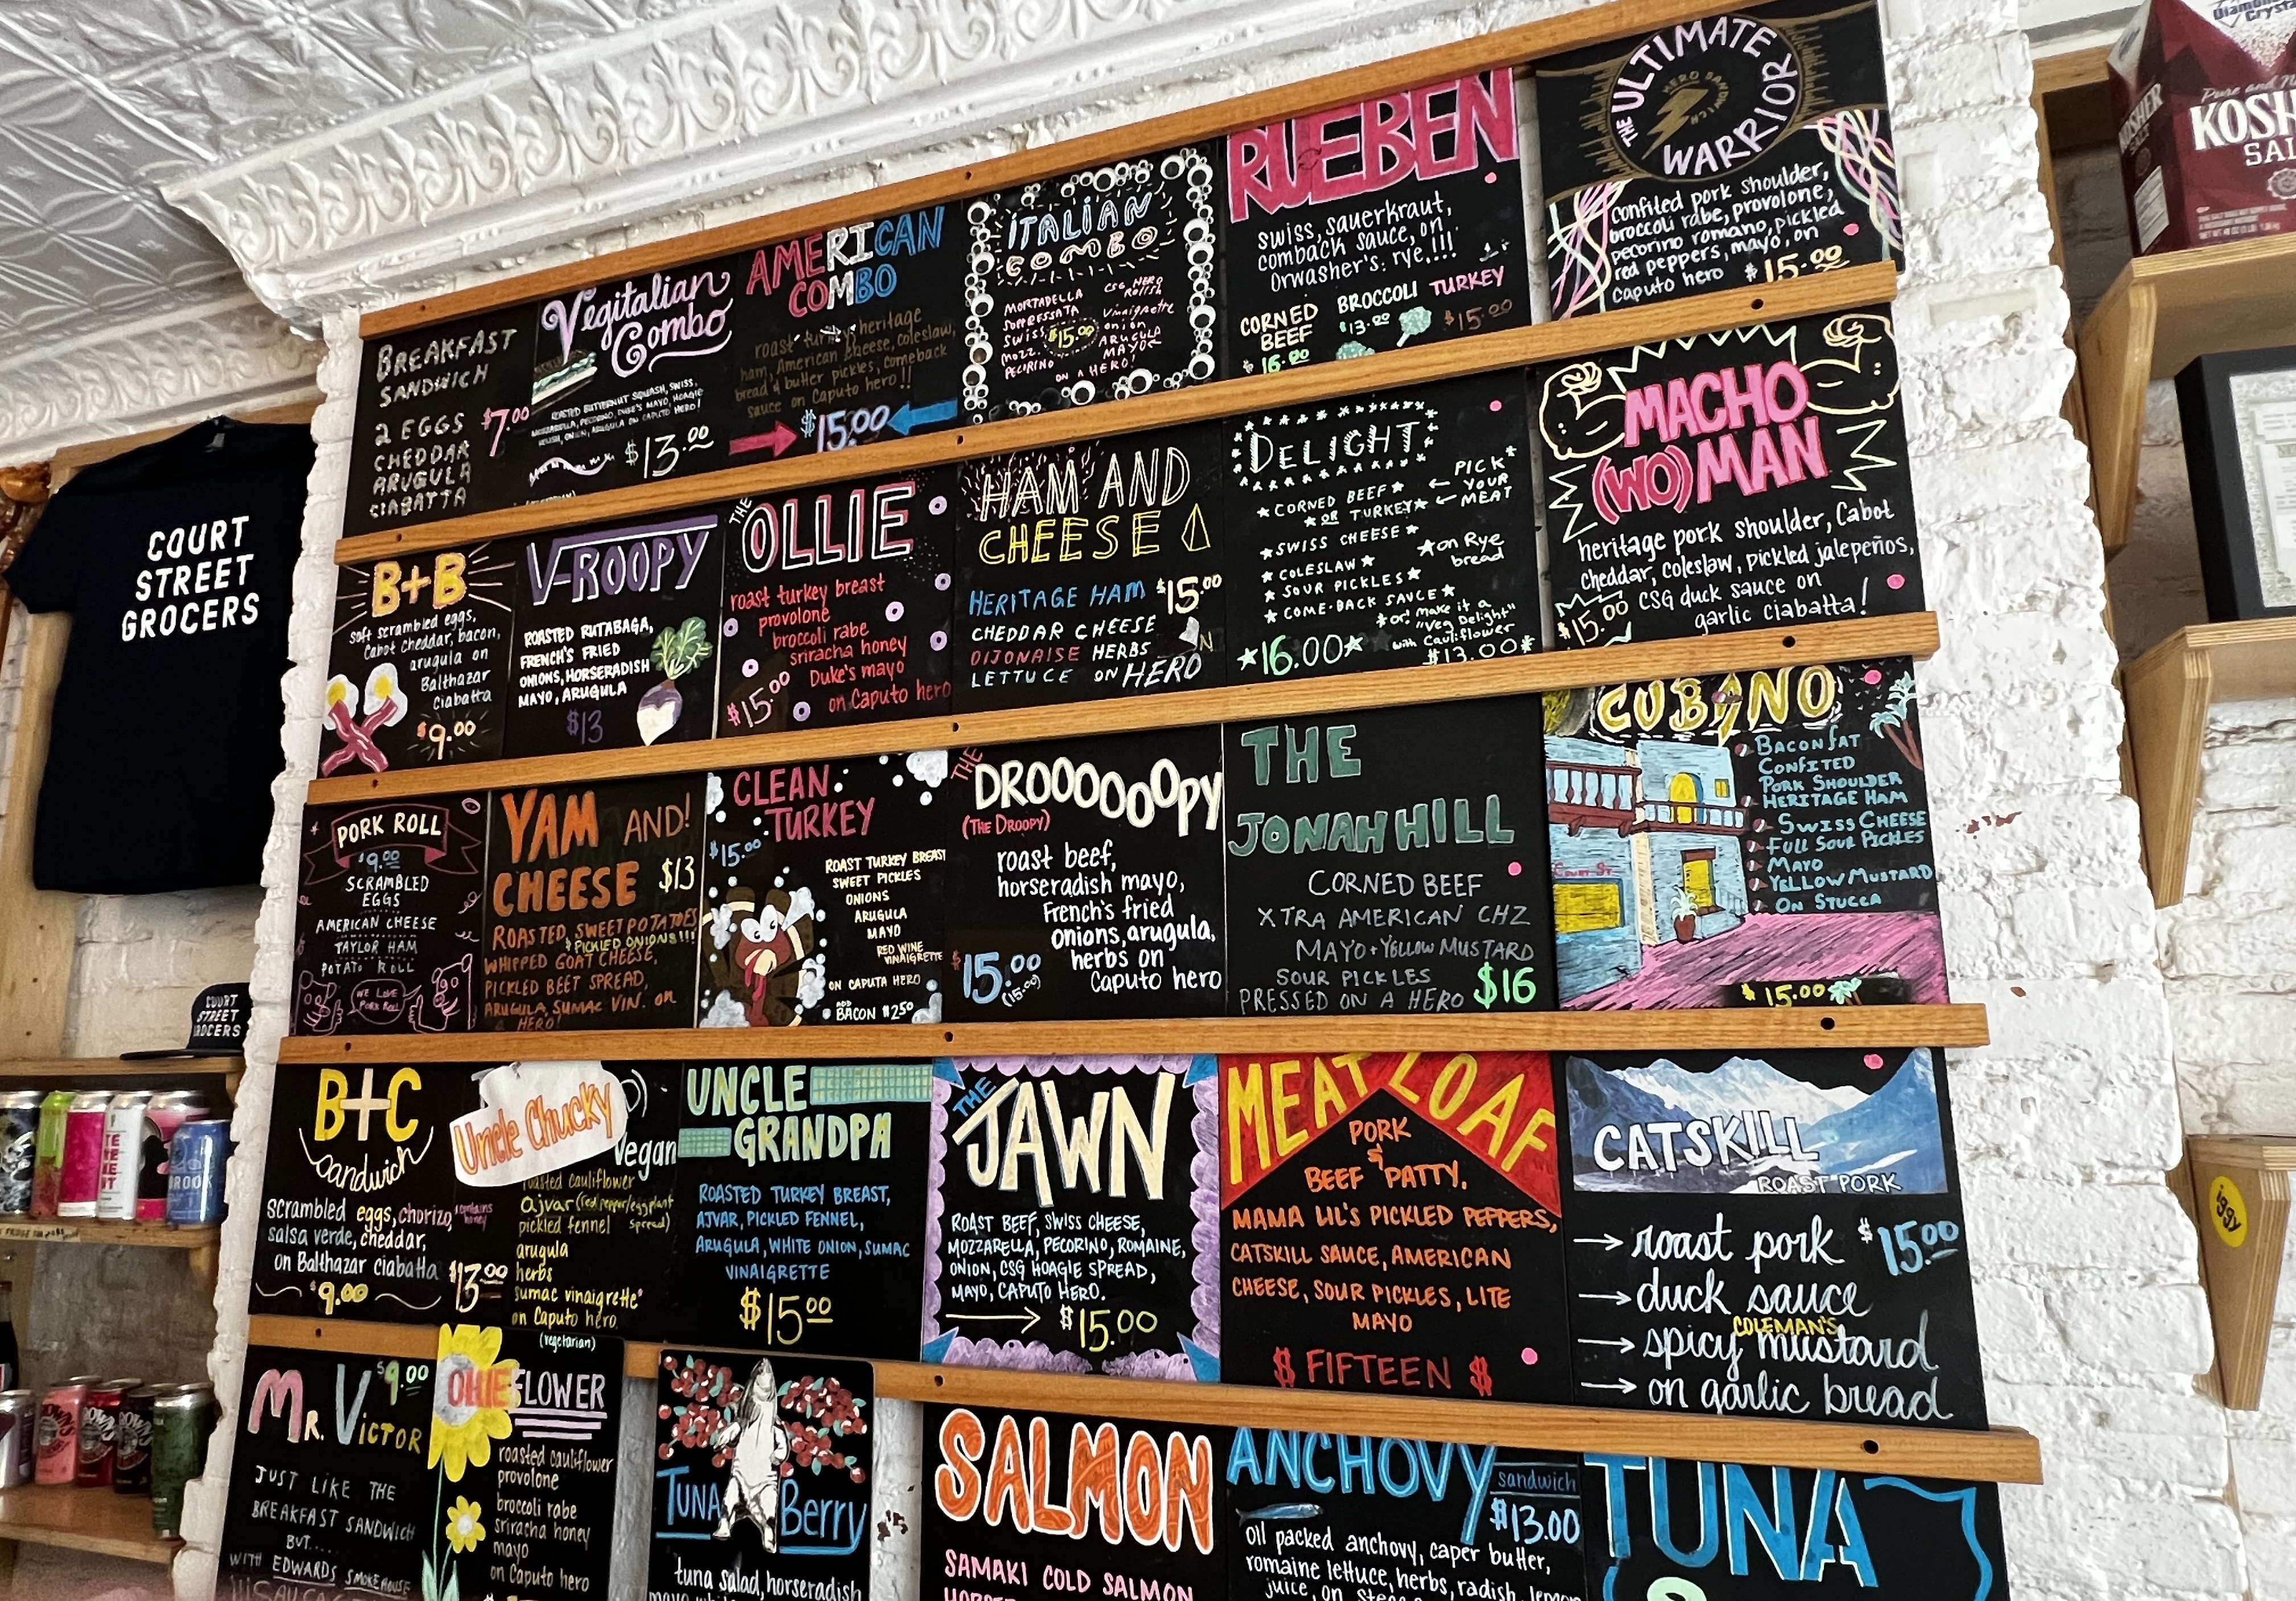 BREAKFAST
SANDWICH
2 EGGS
CHEDDAR
ARUGULA
CIABATTA
$7.00
Vegitalian
Combo
ROASTED BUTTERNUT SQUASH, SWISS,
MOZZARELLA, PECORINO, DUKE'S MAYO, HOAGIE
RELISH, ONION, ARUGULA ON CAPUTO HERO!
$13.00
AMERICAN
COMBO
roast turkey, heritage
ham, American cheese, coleslaw,
bread & butter pickles, comeback
sauce on Caputo hero!!
$15.00
ITALIAN
COMBO
MORTADELLA
SOPPRESSATA
SWISS
MOZZ.
PECORINO
$15.00
CSG HERO
RELISH
Vinaigrette
onion
ARUGULA
MAYO
ON A HERO!
RUEBEN
swiss, sauerkraut,
comback sauce, on
Orwasher's rye!!!!
CORNED
BEEF
16.00
BROCCOLI
$13.00
TURKEY
$15.00
THE ULTIMATE
HERO SANDWICH
WARRIOR
confited pork shoulder,
broccoli rabe, provolone,
pecorino romano, pickled
red peppers, mayo, on
caputo hero $15.00
B+B
soft scrambled eggs,
Cabot cheddar, bacon,
arugula on
Balthazar
ciabatta
$9.00
V-ROOPY
ROASTED RUTABAGA,
FRENCH'S FRIED
ONIONS, HORSERADISH
MAYO, ARUGULA
$13
THE
OLLIE
roast turkey breast
provolone
broccoli rabe
sriracha honey
Duke's mayo
on Caputo hero
$15.00
HAM AND
CHEESE
HERITAGE HAM $15.00
CHEDDAR CHEESE
DIJONAISE HERBS
LETTUCE ON HERO
DELIGHT
CORNED BEEF
OR TURKEY
PICK
YOUR
MEAT
SWISS CHEESE
COLESLAW
SOUR PICKLES
COME-BACK SAUCE
on Rye
bread
or! make it a
"Veg Delight"
with Cauliflower
$13.00
16.00
MACHO
(WO)MAN
heritage pork shoulder, Cabot
cheddar, coleslaw, pickled jalepeños,
CSG duck sauce on
garlic ciabatta!
$15.00
COURT
STREET
GROCERS
PORK ROLL
$9.00
SCRAMBLED
EGGS
AMERICAN CHEESE
TAYLOR HAM
POTATO ROLL
WE LOVE
PORK ROLL
YAM AND!
CHEESE $13
ROASTED SWEET POTATOES
& PICKLED ONIONS!!!
WHIPPED GOAT CHEESE,
PICKLED BEET SPREAD,
ARUGULA, SUMAC VIN. ON
A HERO!
CLEAN
TURKEY
$15.00
ROAST TURKEY BREAST
SWEET PICKLES
ONIONS
ARUGULA
MAYO
RED WINE
VINAIGRETTE
ON CAPUTA HERO
ADD
BACON $2.50
THE
DROOOOOOPY
(THE DROOPY)
roast beef,
horseradish mayo,
French's fried
onions, arugula,
herbs on
Caputo hero
$15.00
(15.00)
THE
JONAH HILL
CORNED BEEF
XTRA AMERICAN CHZ
MAYO + YELLOW MUSTARD
SOUR PICKLES
PRESSED ON A HERO $16
CUBANO
BACON FAT
CONFITED
PORK SHOULDER
HERITAGE HAM
SWISS CHEESE
FULL SOUR PICKLES
MAYO
YELLOW MUSTARD
ON STUCCA
COURT ST
$15.00
COURT
STREET
GROCERS
B+C
sandwich
scrambled eggs, chorizo,
salsa verde, cheddar,
on Balthazar ciabatta
$9.00
Uncle Chucky
Vegan
roasted cauliflower
ajvar (red pepper/eggplant
spread)
pickled fennel
arugula
herbs
sumac vinaigrette*
on Caputo hero
(vegetarian)
*contains
honey
$13.00
UNCLE
GRANDPA
ROASTED TURKEY BREAST,
AJVAR, PICKLED FENNEL,
ARUGULA, WHITE ONION, SUMAC
VINAIGRETTE
$15.00
THE
JAWN
ROAST BEEF, SWISS CHEESE,
MOZZARELLA, PECORINO, ROMAINE,
ONION, CSG HOAGIE SPREAD,
MAYO, CAPUTO HERO.
$15.00
MEATLOAF
PORK
&
BEEF PATTY.
MAMA LIL'S PICKLED PEPPERS,
CATSKILL SAUCE, AMERICAN
CHEESE, SOUR PICKLES, LITE
MAYO
$ FIFTEEN $
CATSKILL
ROAST PORK
roast pork $15.00
duck sauce
COLEMAN'S
spicy mustard
on garlic bread
MR. VICTOR
$9.00
JUST LIKE THE
BREAKFAST SANDWICH
BUT.....
WITH EDWARDS SMOKEHOUSE
SAUSAGE
OLLIE FLOWER
roasted cauliflower
provolone
broccoli rabe
sriracha honey
mayo
on Caputo hero
TUNA Berry
tuna salad, horseradish
SALMON
SAMAKI COLD SALMON
ANCHOVY
sandwich
$13.00
oil packed anchovy, caper butter,
romaine lettuce, herbs, radish, lemon
juice, on
TUNA
Diamond
Crystal
Pure and
KOSHER
KOSH
SAL
iggy